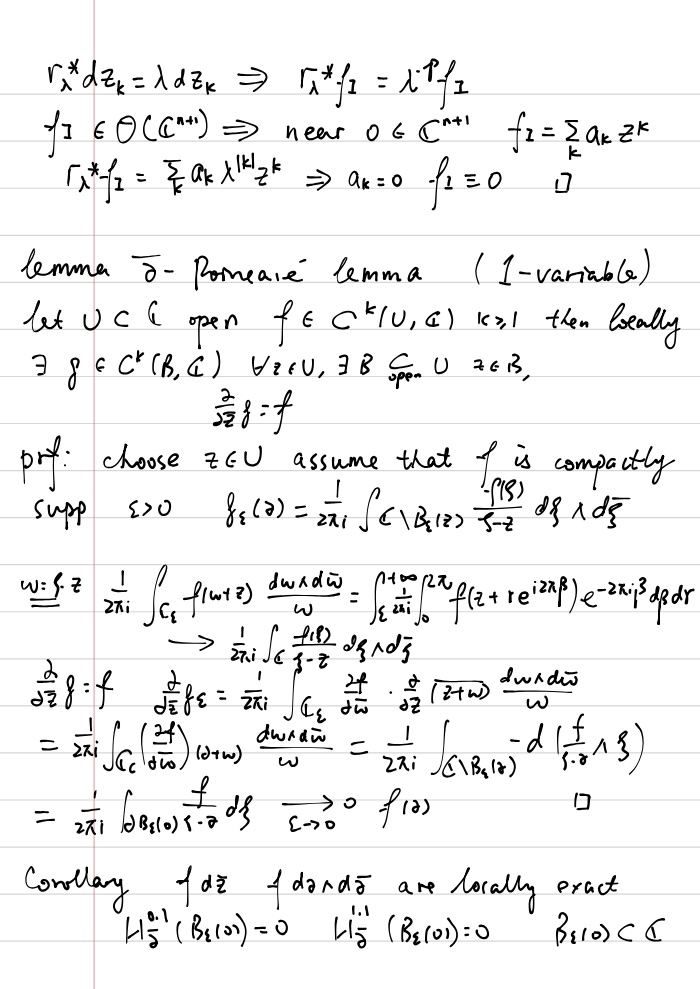 r_λ^* dz_k = λ dz_k ⟹ r_λ^* f_I = λ^{-p} f_I
f_I ∈ O(ℂ^{n+1}) ⟹ near 0 ∈ ℂ^{n+1} f_I = Σ_k a_k z^k
r_λ^* f_I = Σ_k a_k λ^{|k|} z^k ⟹ a_k = 0 f_I ≡ 0 □
lemma ∂̄ - Poincaré lemma (1-variable)
let U ⊂ ℂ open f ∈ C^k(U, ℂ) k ≥ 1 then locally
∃ g ∈ C^k(B, ℂ) ∀z∈U, ∃ B ⊂_{open} U z∈B,
∂/∂z̄ g = f
prf: choose z∈U assume that f is compactly
supp ε>0 g_ε(z) = 1/2πi ∫_{ℂ\B_ε(z)} f(ξ)/(ξ-z) dξ ∧ dξ̄
w = ξ-z 1/2πi ∫_{ℂ_ε} f(w+z) dw∧dw̄/w = ∫_ε^{+∞} 1/2πi ∫_0^{2π} f(z + re^{i2πβ}) e^{-2πiβ} dβ dr
⟶ 1/2πi ∫_ℂ f(ξ)/(ξ-z) dξ ∧ dξ̄
∂/∂z̄ g = f ∂/∂z̄ g_ε = 1/2πi ∫_{ℂ_ε} ∂f/∂w̄ · ∂/∂z̄ \overline{(z+w)} dw∧dw̄/w
= 1/2πi ∫_{ℂ_ε} (∂f/∂w̄)(z+w) dw∧dw̄/w = 1/2πi ∫_{ℂ\B_ε(z)} -d(f/(ξ-z) ∧ ξ)
= 1/2πi ∫_{∂B_ε(0)} f/(ξ-z) dξ ⟶_{ε→0} f(z) □
Corollary f dz̄ f dz∧dz̄ are locally exact
H_{∂̄}^{0,1}(B_ε(0)) = 0 H_{∂̄}^{1,1}(B_ε(0)) = 0 B_ε(0) ⊂ ℂ